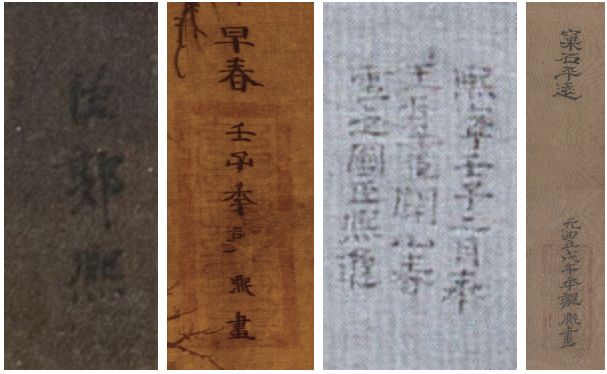 郭熙
早春
壬子年郭熙畫
熙寧壬子二月奉
王旨畫關山春
雪之圖臣熙進
窠石平遠
元豐戊午年郭熙畫